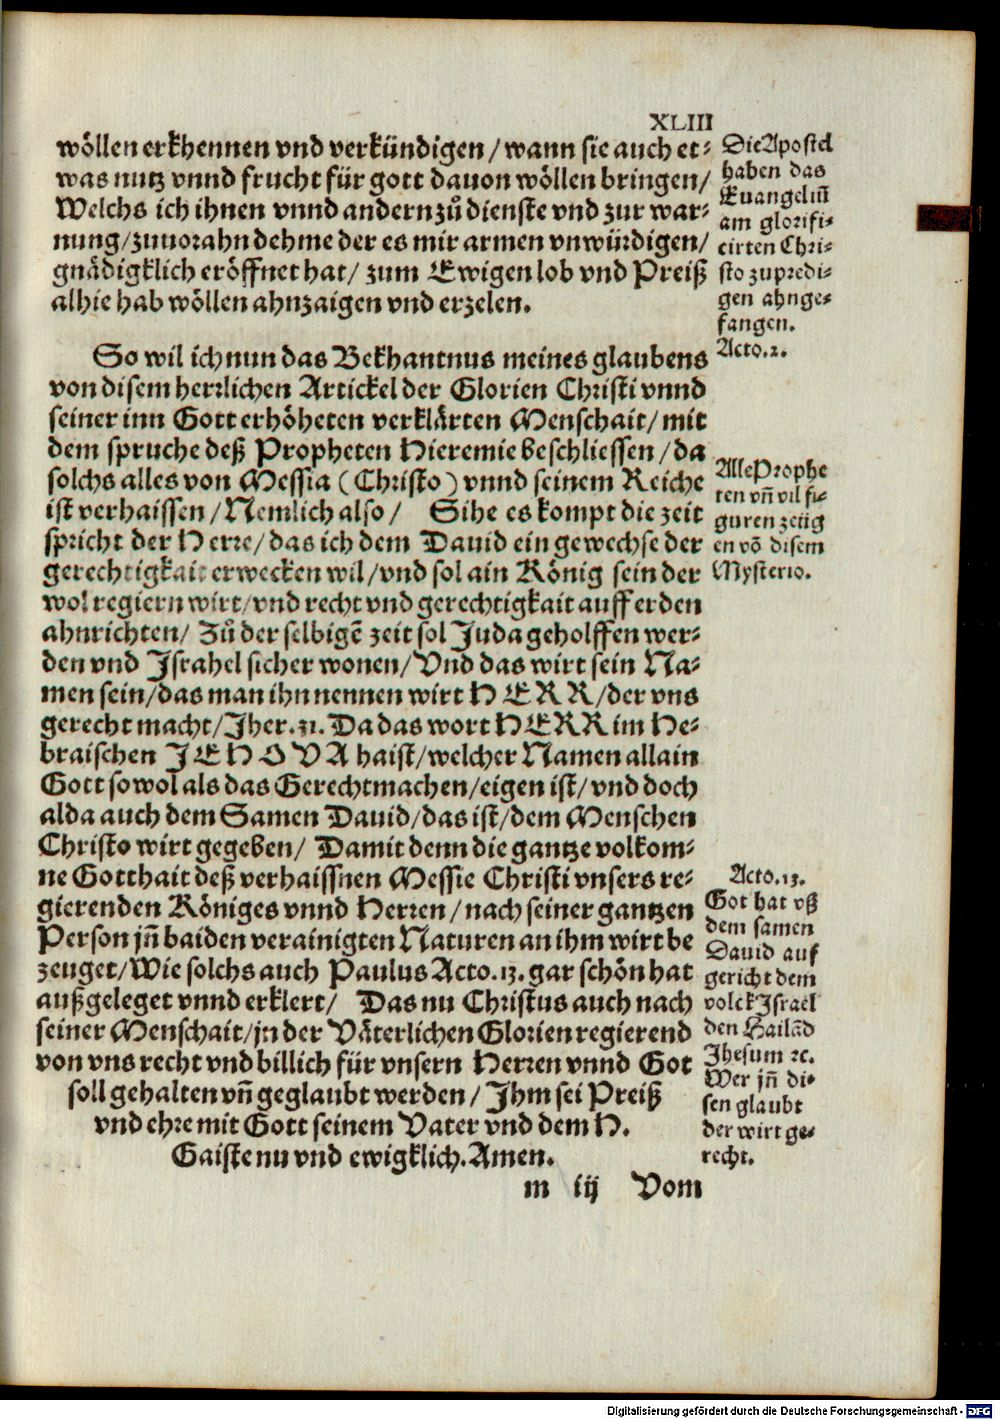 XLIII
wöllen erkhennen vnd verkündigen / wann sie auch et⸗
was nutz vnnd frucht für gott dauon wöllen bringen /
Welchs ich ihnen vnnd andern zů dienste vnd zur war⸗
nung / zuuorahn dehme der es mir armen vnwürdigen /
gnädigklich eröffnet hat / zum Ewigen lob vnd Preiß
alhie hab wöllen ahnzaigen vnd erzelen.
So wil ich nun das Bekhantnus meines glaubens
von disem herrlichen Artickel der Glorien Christi vnnd
seiner inn Gott erhöheten verklärten Menschait / mit
dem spruche deß Propheten Hieremie beschliessen / da
solchs alles von Messia (Christo) vnnd seinem Reiche
ist verhaissen / Nemlich also / Sihe es kompt die zeit
spricht der Herre / das ich dem Dauid ein gewechse der
gerechtigkait erwecken wil / vnd sol ain König sein der
wol regiern wirt / vnd recht vnd gerechtigkait auff erden
ahnrichten / Zů der selbigē zeit sol Juda geholffen wer⸗
den vnd Israhel sicher wonen / Vnd das wirt sein Na⸗
men sein / das man ihn nennen wirt HERR / der vns
gerecht macht / Jher. 31. Da das wort HERR im He⸗
braischen JEHOVA haist / welcher Namen allain
Gott so wol als das Gerechtmachen / eigen ist / vnd doch
alda auch dem Samen Dauid / das ist / dem Menschen
Christo wirt gegeben / Damit denn die gantze volkom⸗
ne Gotthait deß verhaissnen Messie Christi vnsers re⸗
gierenden Königes vnnd Herren / nach seiner gantzen
Person jn̄ baiden verainigten Naturen an ihm wirt be
zeuget / Wie solchs auch Paulus Acto. 13. gar schön hat
außgeleget vnnd erklert / Das nu Christus auch nach
seiner Menschait / jn der Väterlichen Glorien regierend
von vns recht vnd billich für vnsern Herren vnnd Got
soll gehalten vn̄ geglaubt werden / Ihm sei Preiß
vnd ehre mit Gott seinem Vater vnd dem H.
Gaiste nu vnd ewigklich. Amen.
m iij Vom
Die Apostel
haben das
Euangeliū
am glorifi⸗
cirten Chri⸗
sto zu predi⸗
gen ahnge⸗
fangen.
Acto. 2.
Alle Prophe
ten vn̄ vil fi⸗
guren zeüg
en vō disem
Mysterio.
Acto. 13.
Got hat vß
dem samen
Dauid auf
gericht dem
volck Israel
den Hailād
Jhesum ꝛc.
Wer jn̄ di⸗
sen glaubt
der wirt ge⸗
recht.
Digitalisierung gefördert durch die Deutsche Forschungsgemeinschaft - DFG